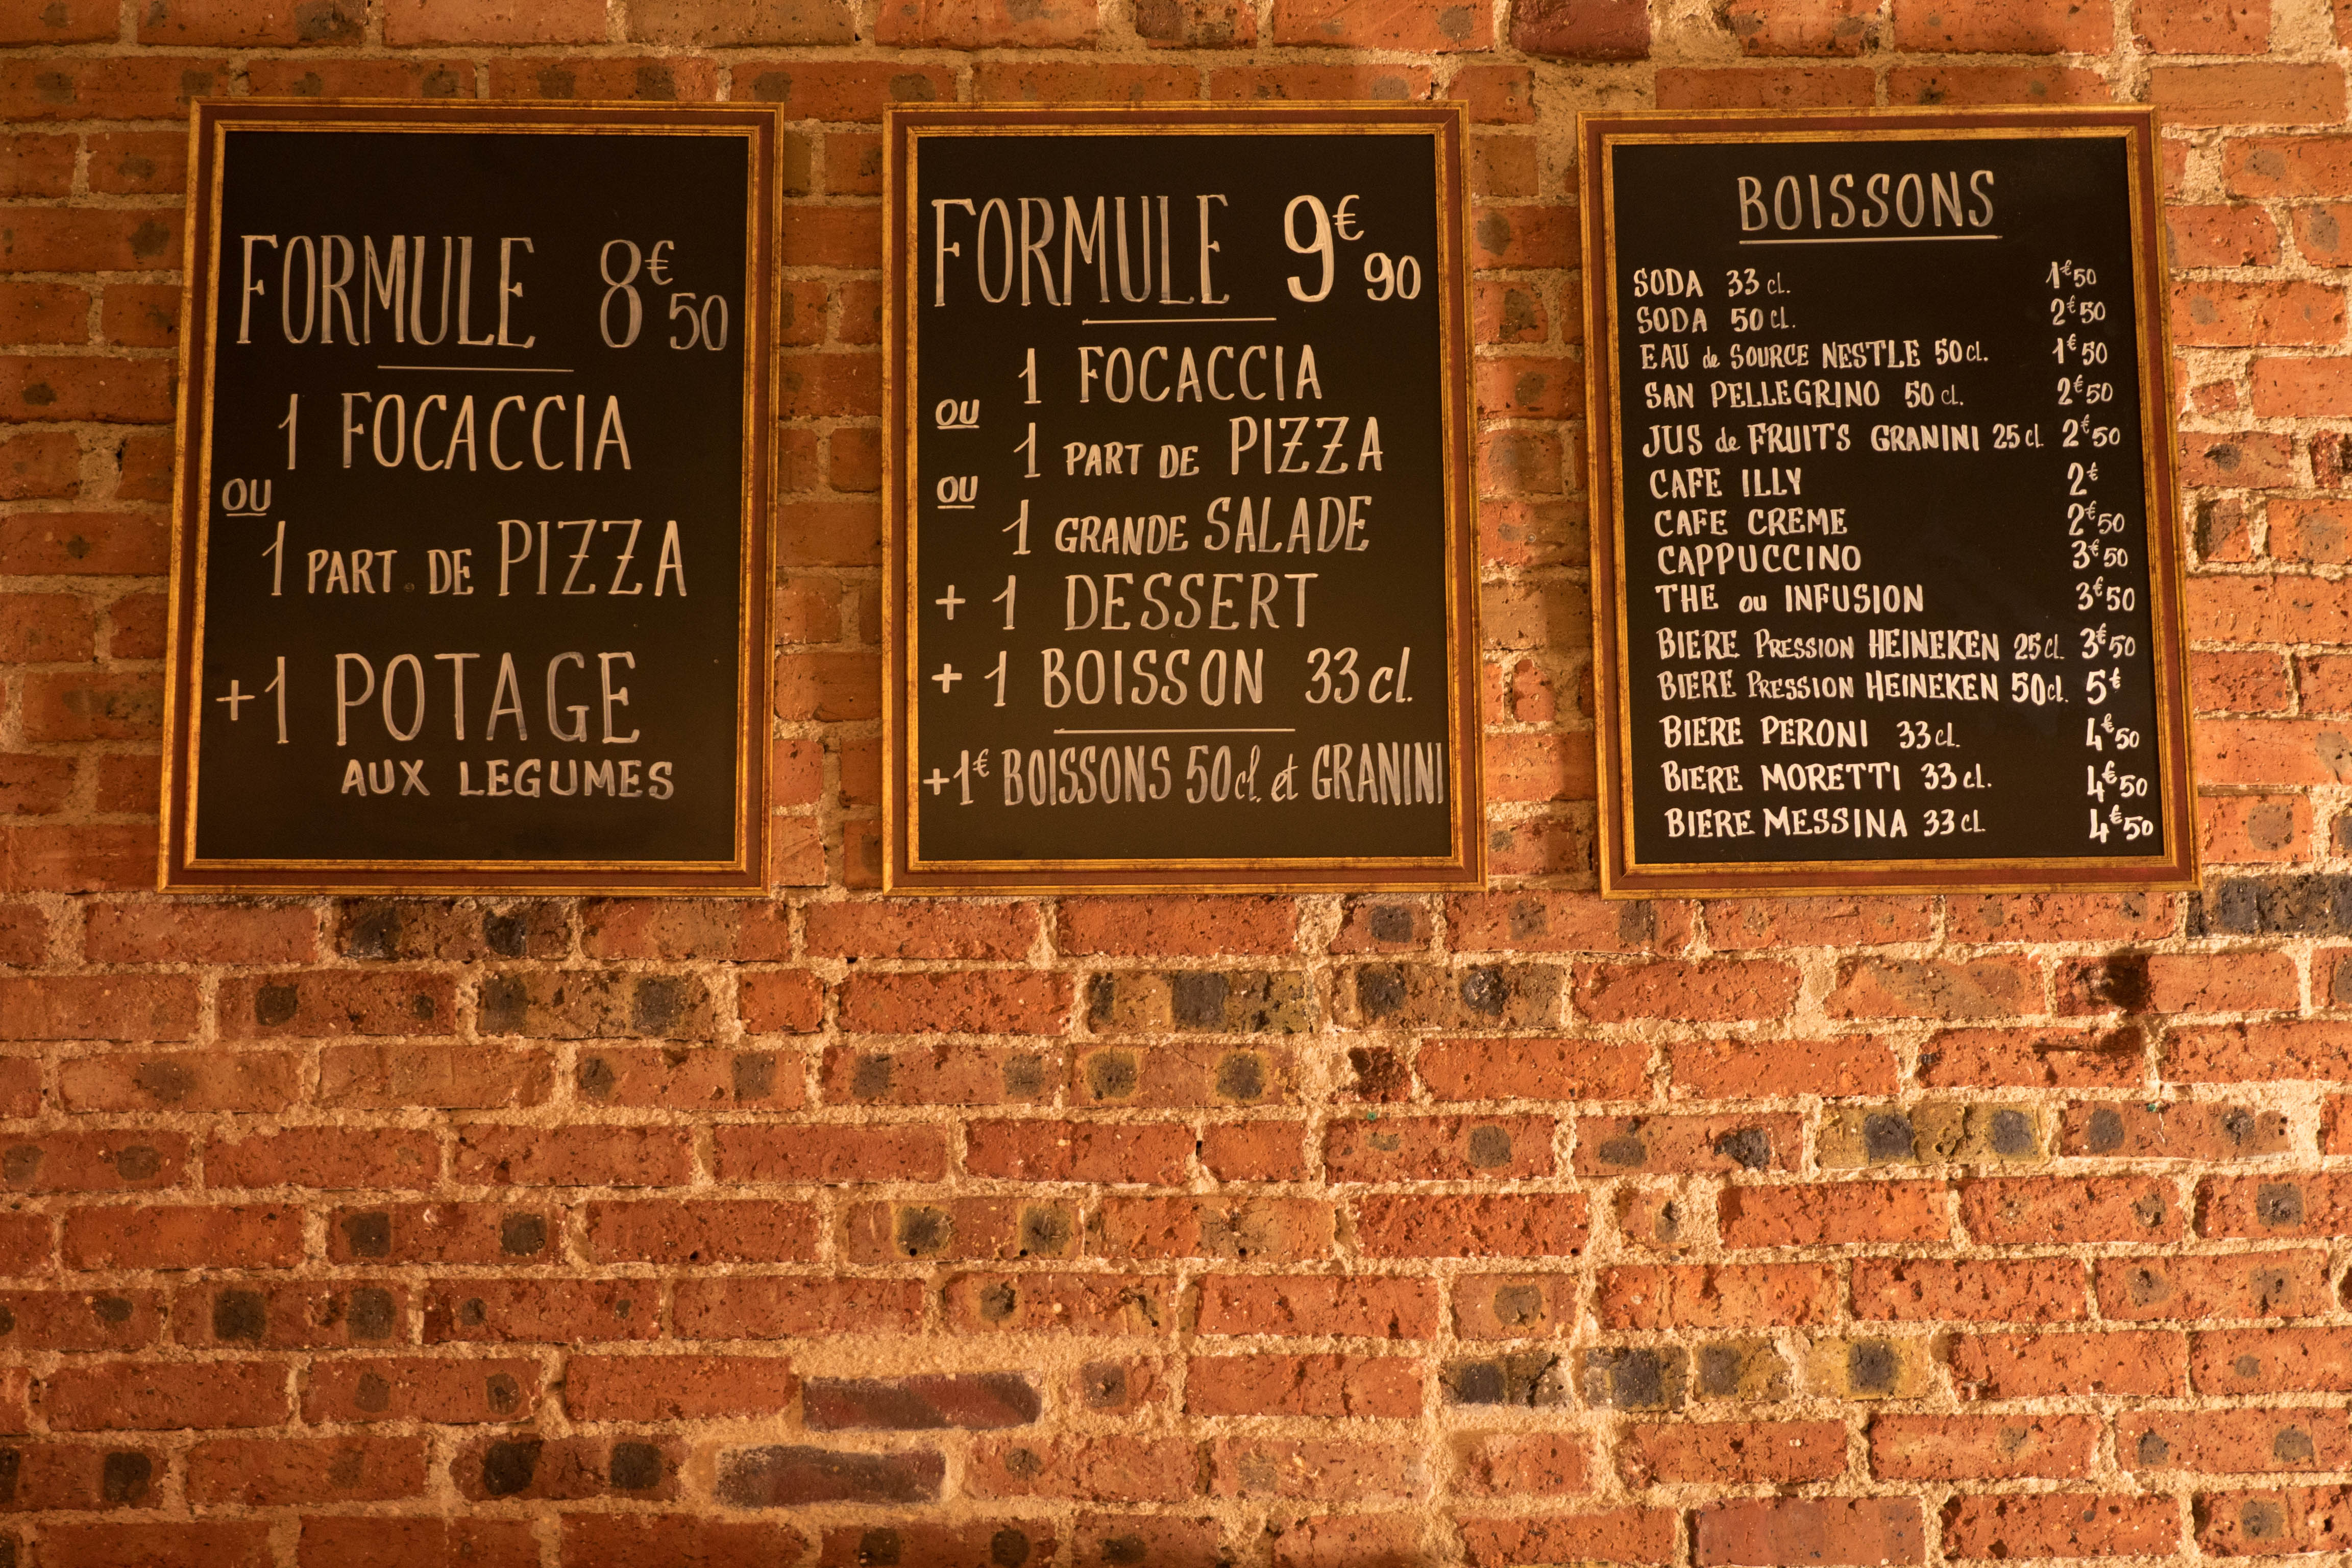 FORMULE 8€50
1 FOCACCIA
OU
1 PART DE PIZZA
+1 POTAGE
AUX LEGUMES
FORMULE 9€90
1 FOCACCIA
OU
1 PART DE PIZZA
OU
1 GRANDE SALADE
+ 1 DESSERT
+ 1 BOISSON 33cl.
+1€ BOISSONS 50cl. et GRANINI
BOISSONS
SODA 33 cl. 1€50
SODA 50 cl. 2€50
EAU de SOURCE NESTLE 50cl. 1€50
SAN PELLEGRINO 50 cl. 2€50
JUS de FRUITS GRANINI 25 cl 2€50
CAFE ILLY 2€
CAFE CREME 2€50
CAPPUCCINO 3€50
THE ou INFUSION 3€50
BIERE PRESSION HEINEKEN 25cl. 3€50
BIERE PRESSION HEINEKEN 50cl. 5€
BIERE PERONI 33cl. 4€50
BIERE MORETTI 33 cl. 4€50
BIERE MESSINA 33 cl 4€50